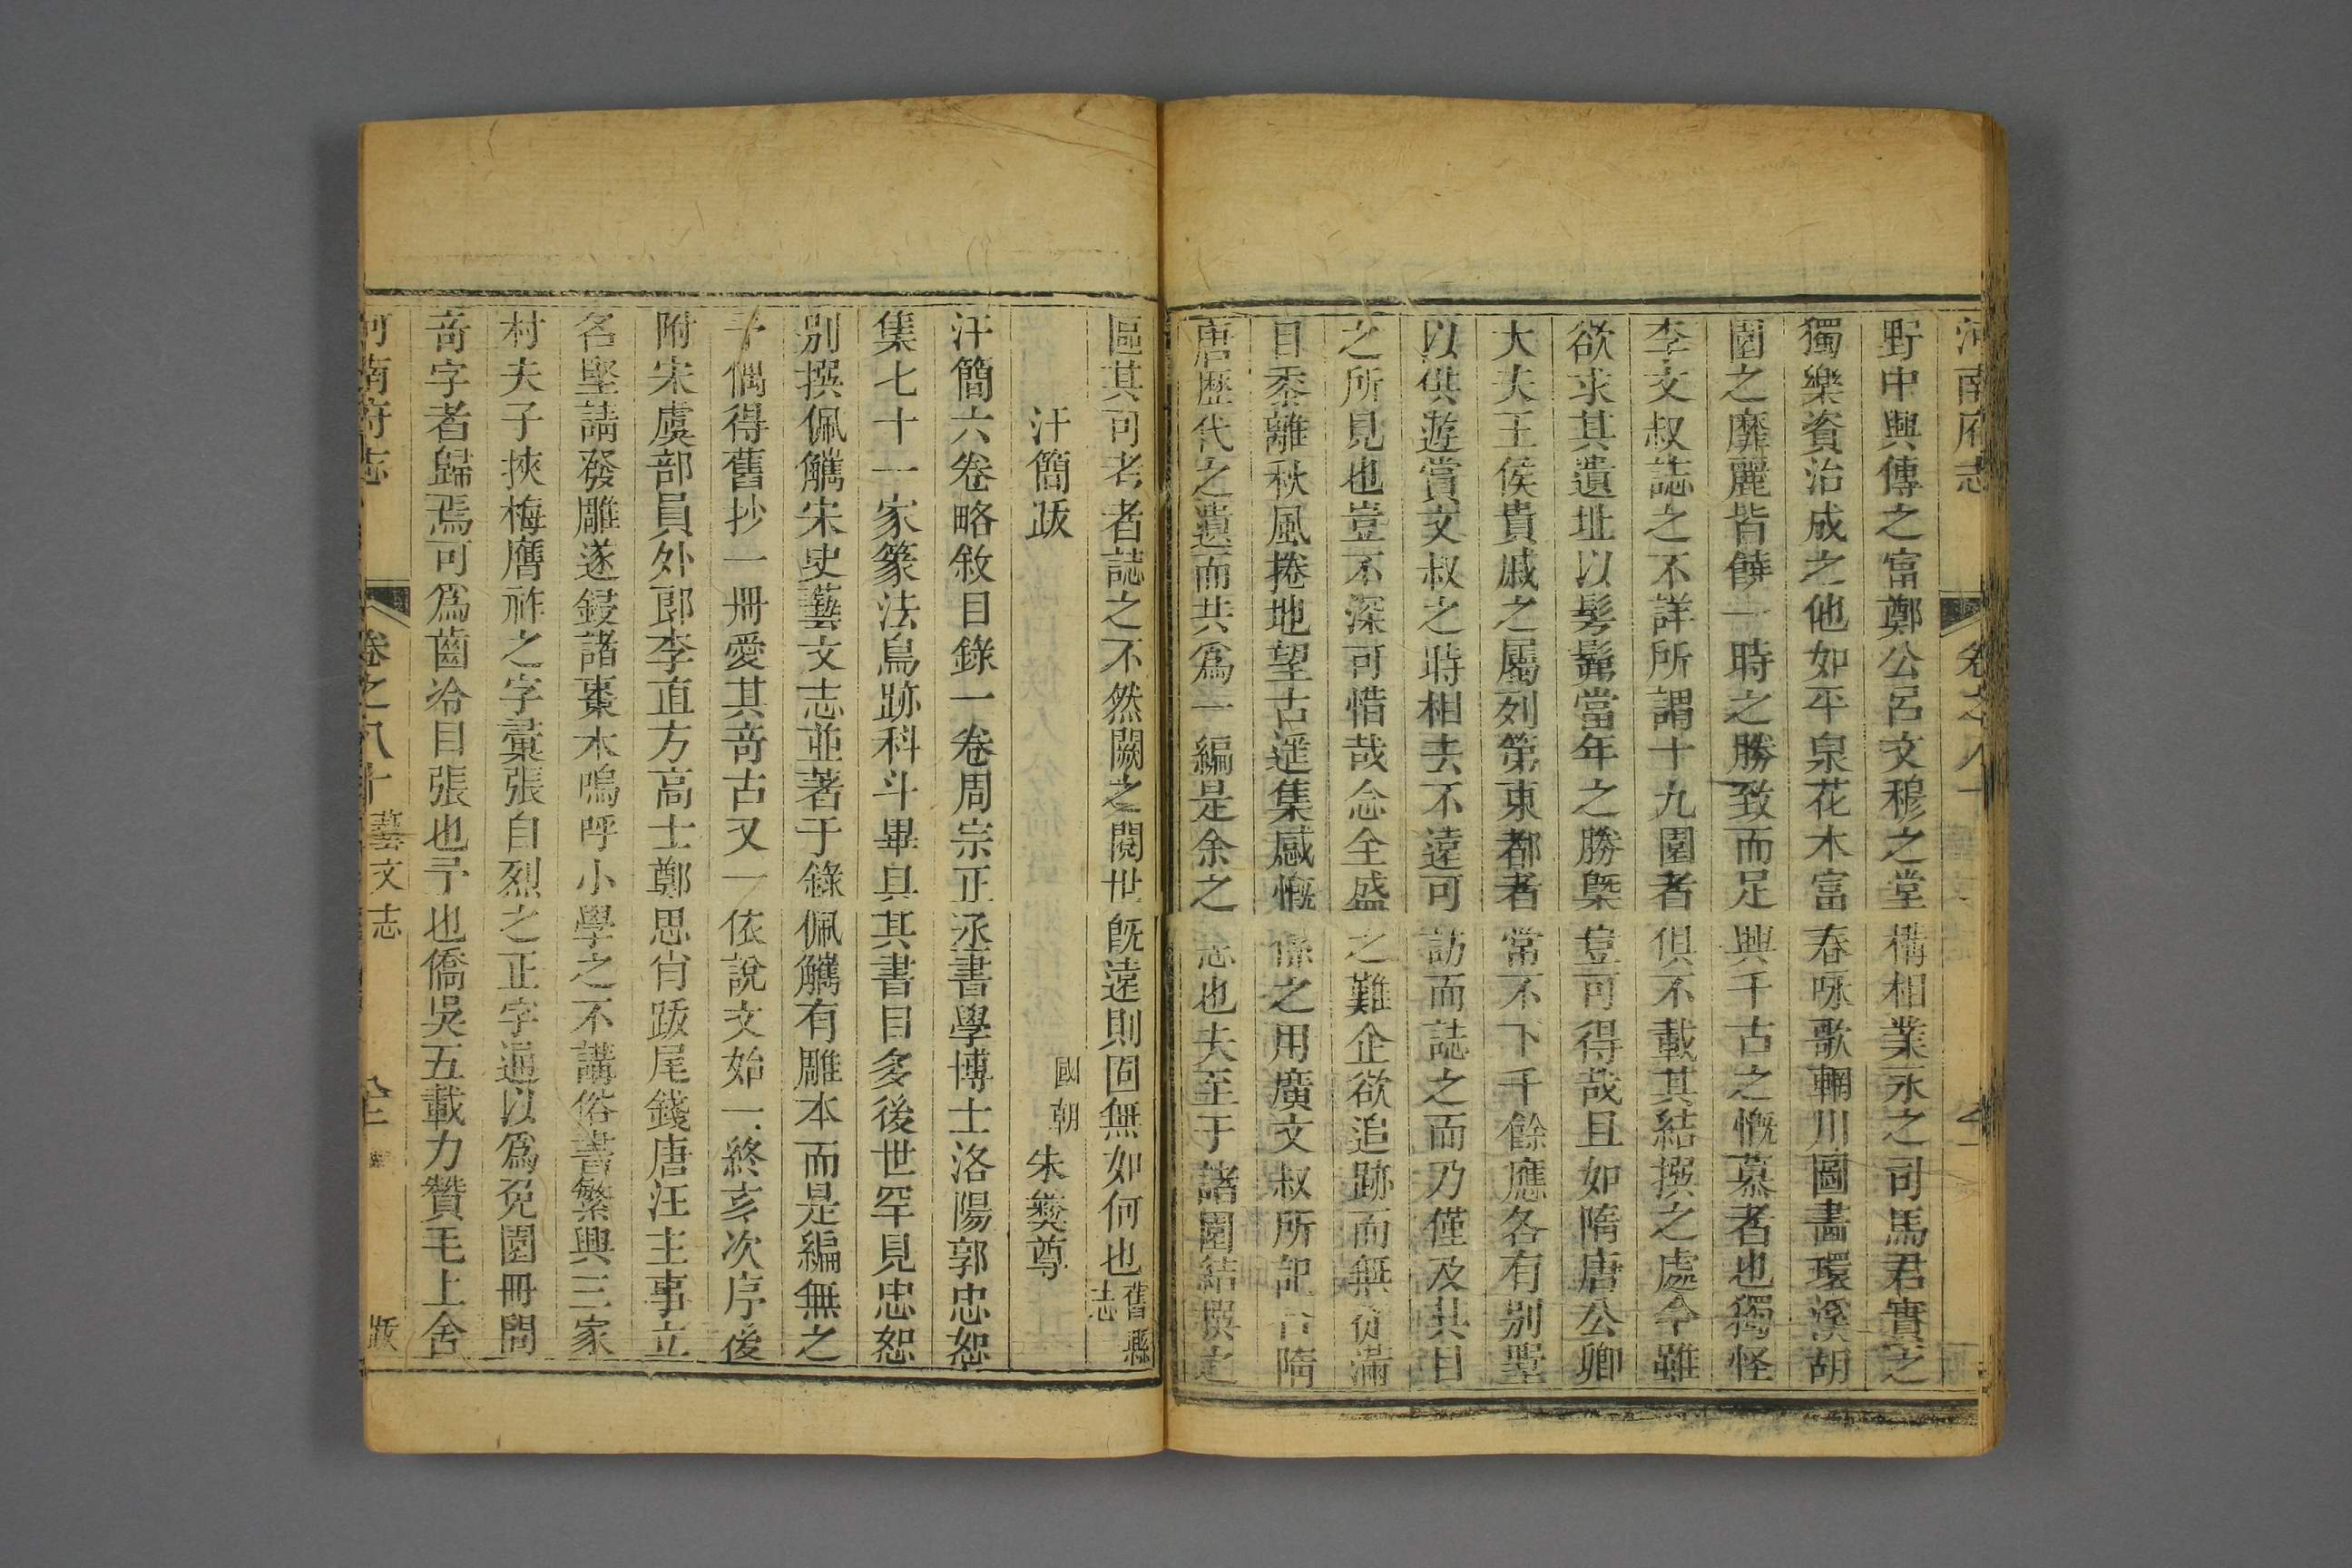 河南府志 卷之八十
野中興傳之富鄭公呂文穆之堂構相業永之司馬君實之
獨樂資治成之他如平泉花木富春咏歌輞川圖畵環溪胡
園之靡麗皆饒一時之勝致而足興千古之慨慕者也獨怪
李文叔誌之不詳所謂十九園者俱不載其結撰之處今雖
欲求其遺址以髣髴當年之勝槩豈可得哉且如隋唐公卿
大夫王侯貴戚之屬列第東都者當不下千餘應各有别墅
以供遊賞文叔之時相去不遠可訪而誌之而乃僅及其目
之所見也豈不深可惜哉念全盛之難企欲追跡而無從滿
目黍離秋風捲地望古遥集感慨係之用廣文叔所記合隋
唐歷代之遺而共爲一編是余之志也夫至于諸園結撰之
區其可考者誌之不然闕之閱世旣遠則固無如何也舊縣志
汗簡跋
國朝朱彝尊
汗簡六卷略敘目錄一卷周宗正丞書學博士洛陽郭忠恕
集七十一家篆法鳥跡科斗畢具其書目多後世罕見忠恕
别撰佩觿宋史藝文志並著于錄佩觿有雕本而是編無之
予偶得舊抄一冊愛其竒古又一依說文始一終亥次序後
附宋虞部員外郎李直方高士鄭思肖跋尾錢唐汪主事立
名堅請發雕遂鋟諸棗木嗚呼小學之不講俗書繁興三家
村夫子挾梅膺祚之字彙張自烈之正字通以爲兎園冊問
竒字者歸焉可爲齒冷目張也予也僑吳五載力贊毛上舍
河南府志 卷之八十 藝文志 跋